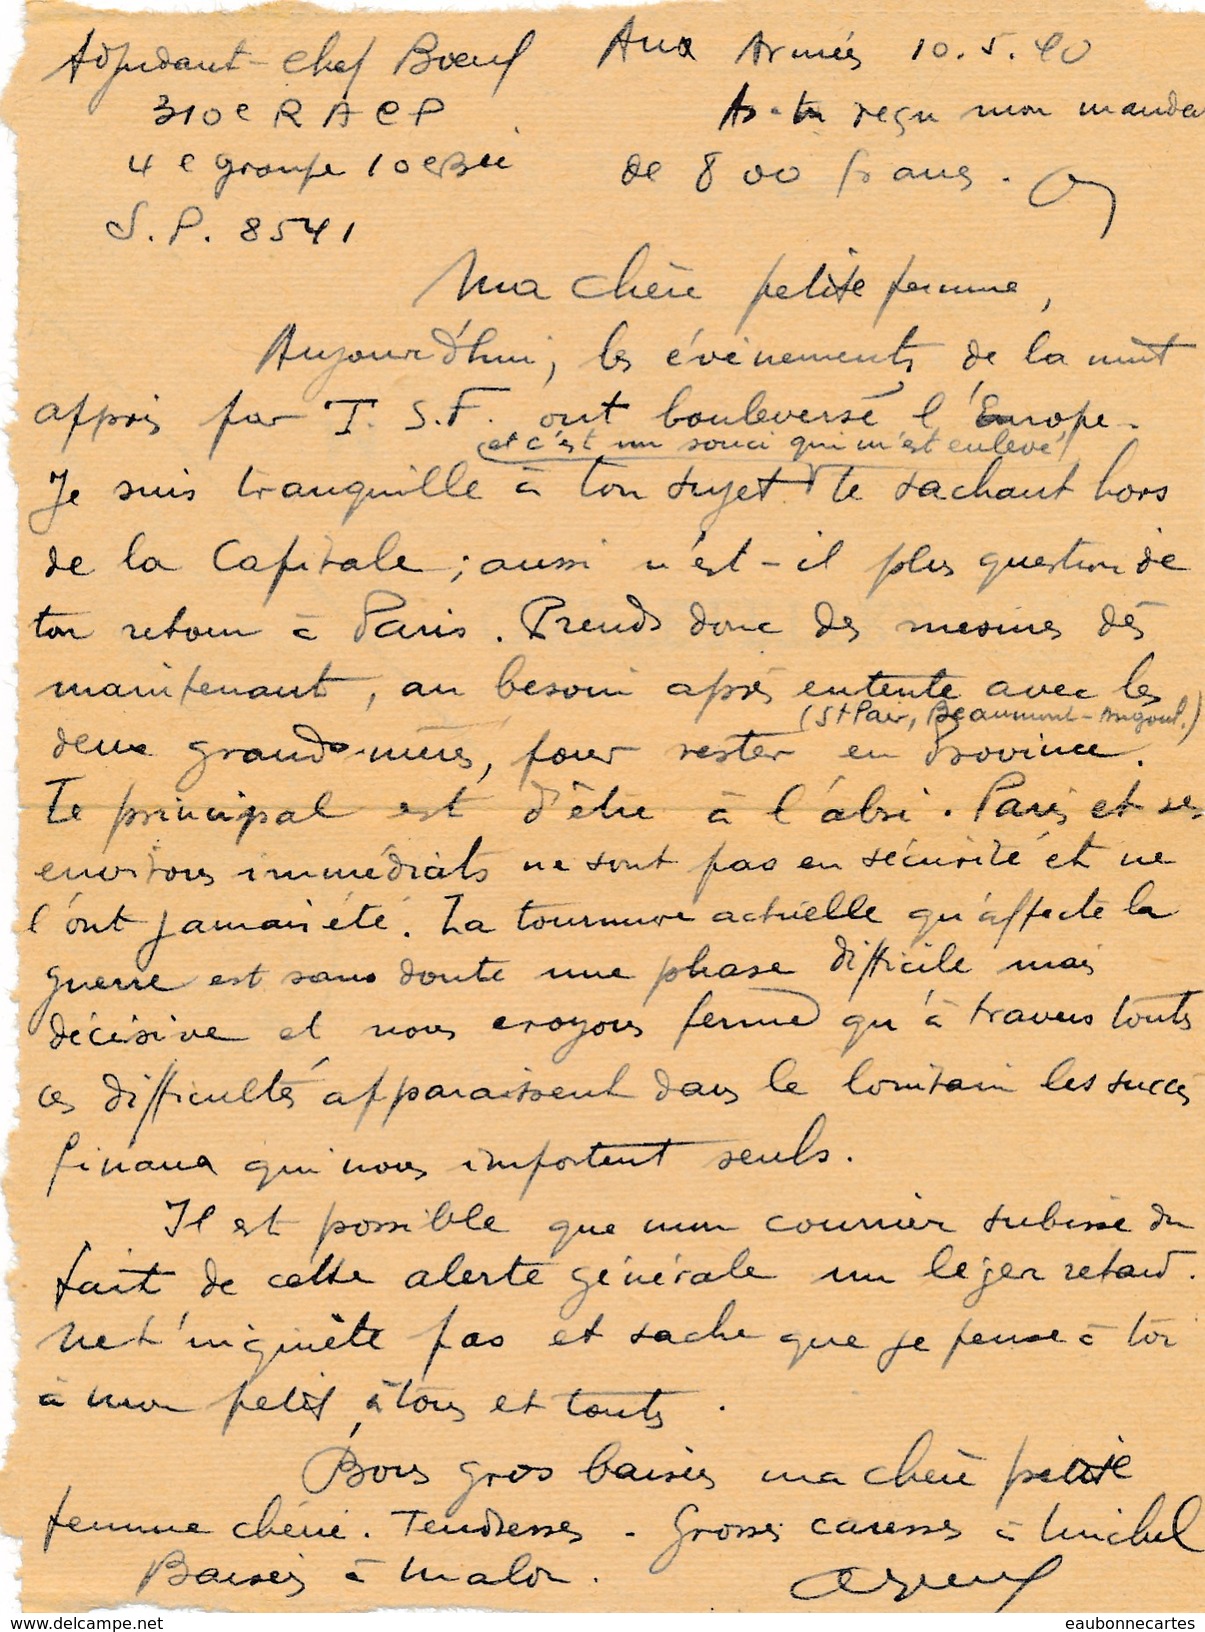 Adjudant-chef Boeuf
310e R A C P
4e groupe 10e Bie
S.P. 8541
Aux Armées 10.5.40
As-tu reçu mon manda
de 800 francs.
Ma chère petite femme,
Aujourd'hui, les événements de la nuit
appris par T.S.F. ont bouleversé l'Europe.
(et c'est un souci qui m'est enlevé)
Je suis tranquille à ton sujet te sachant hors
de la Capitale ; aussi n'est-il plus question de
ton retour à Paris. Prends donc des mesures dès
maintenant, au besoin après entente avec les
(St Pair, Beaumont-Angoul.)
deux grands-mères, pour rester en Province.
Le principal est d'être à l'abri. Paris et ses
environs immédiats ne sont pas en sécurité et ne
l'ont jamais été. La tournure actuelle qu'affecte la
guerre est sans doute une phase difficile mais
décisive et nous croyons ferme qu'à travers toutes
ces difficultés apparaissent dans le lointain les succès
finaux qui nous importent seuls.
Il est possible que mon courrier subisse du
fait de cette alerte générale un léger retard.
Ne t'inquiète pas et sache que je pense à toi
à mon petit, à tous et toutes.
Bons gros baisers ma chère petite
femme chérie. Tendresses. Grosses caresses à Michel
Baisers à Malou.
eaubonnecartes